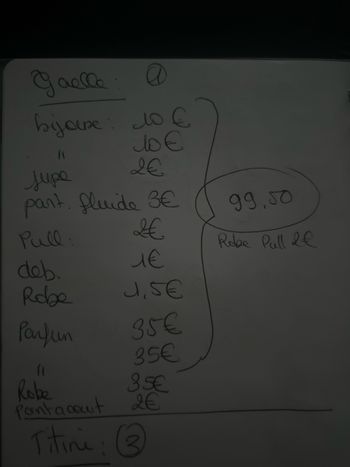 Gaelle : ①
bijoux : 10 €
" 10 €
jupe 2€
pant. fluide 3€
99,50
Pull : 2€
Robe Pull 2€
deb. 1€
Robe 1,5€
Parfun 35€
" 35€
Robe 35€
pantacourt 2€
Titine : ③